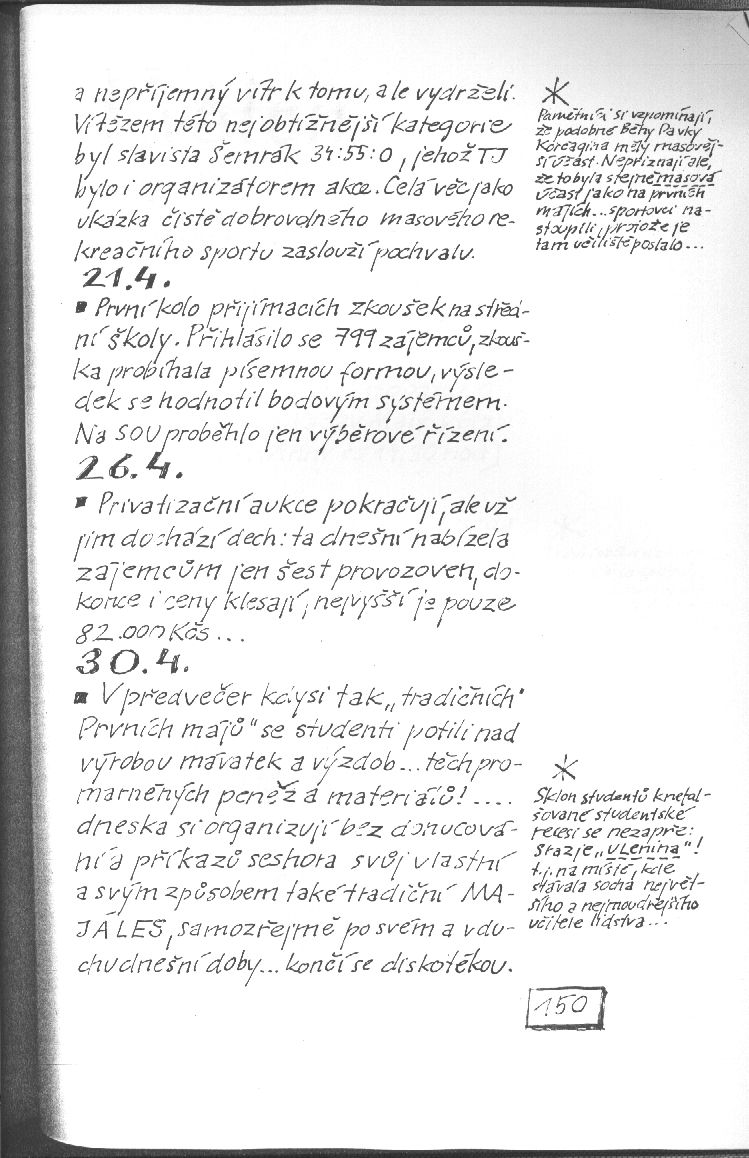 a nepříjemný vítr k tomu, ale vydrželi.
Vítězem této nejobtížnější kategorie
byl slavista Šemrák 34:55:0, jehož TJ
bylo i organizátorem akce. Celá věc jako
ukázka čistě dobrovolného masového re-
kreačního sportu zaslouží pochvalu.
21.4.
▪ První kolo přijímacích zkoušek na střed-
ní školy. Přihlásilo se 799 zájemců, zkouš-
ka probíhala písemnou formou, výsle-
dek se hodnotil bodovým systémem.
Na SOU proběhlo jen výběrové řízení.
26.4.
▪ Privatizační aukce pokračují, ale už
jim dochází dech: ta dnešní nabízela
zájemcům jen šest provozoven, do-
konce i ceny klesají, nejvyšší je pouze
82.000 Kčs...
30.4.
▪ V předvečer kdysi tak „tradičních
Prvních májů" se studenti potili nad
výrobou mávatek a výzdob... těch pro-
marněných peněz a materiálů!....
dneska si organizují bez donucová-
ní a příkazů seshora svůj vlastní
a svým způsobem také tradiční MA-
JÁLES, samozřejmě po svém a v du-
chu dnešní doby... končí se diskotékou.
*
Pamětníci si vzpomínají,
že podobné Běhy Pavky
Korčagina měly masověj-
ší účast. Nepřiznají ale,
že to byla stejně masová
účast jako na prvních
májích... sportovci na-
stoupili, protože je
tam učiliště poslalo...
*
Sklon studentů k nefal-
šované studentské
recesi se nezapře:
Sraz je „U Lenina"!
t.j. na místě, kde
stávala socha největ-
šího a nejmoudřejšího
učitele lidstva...
150